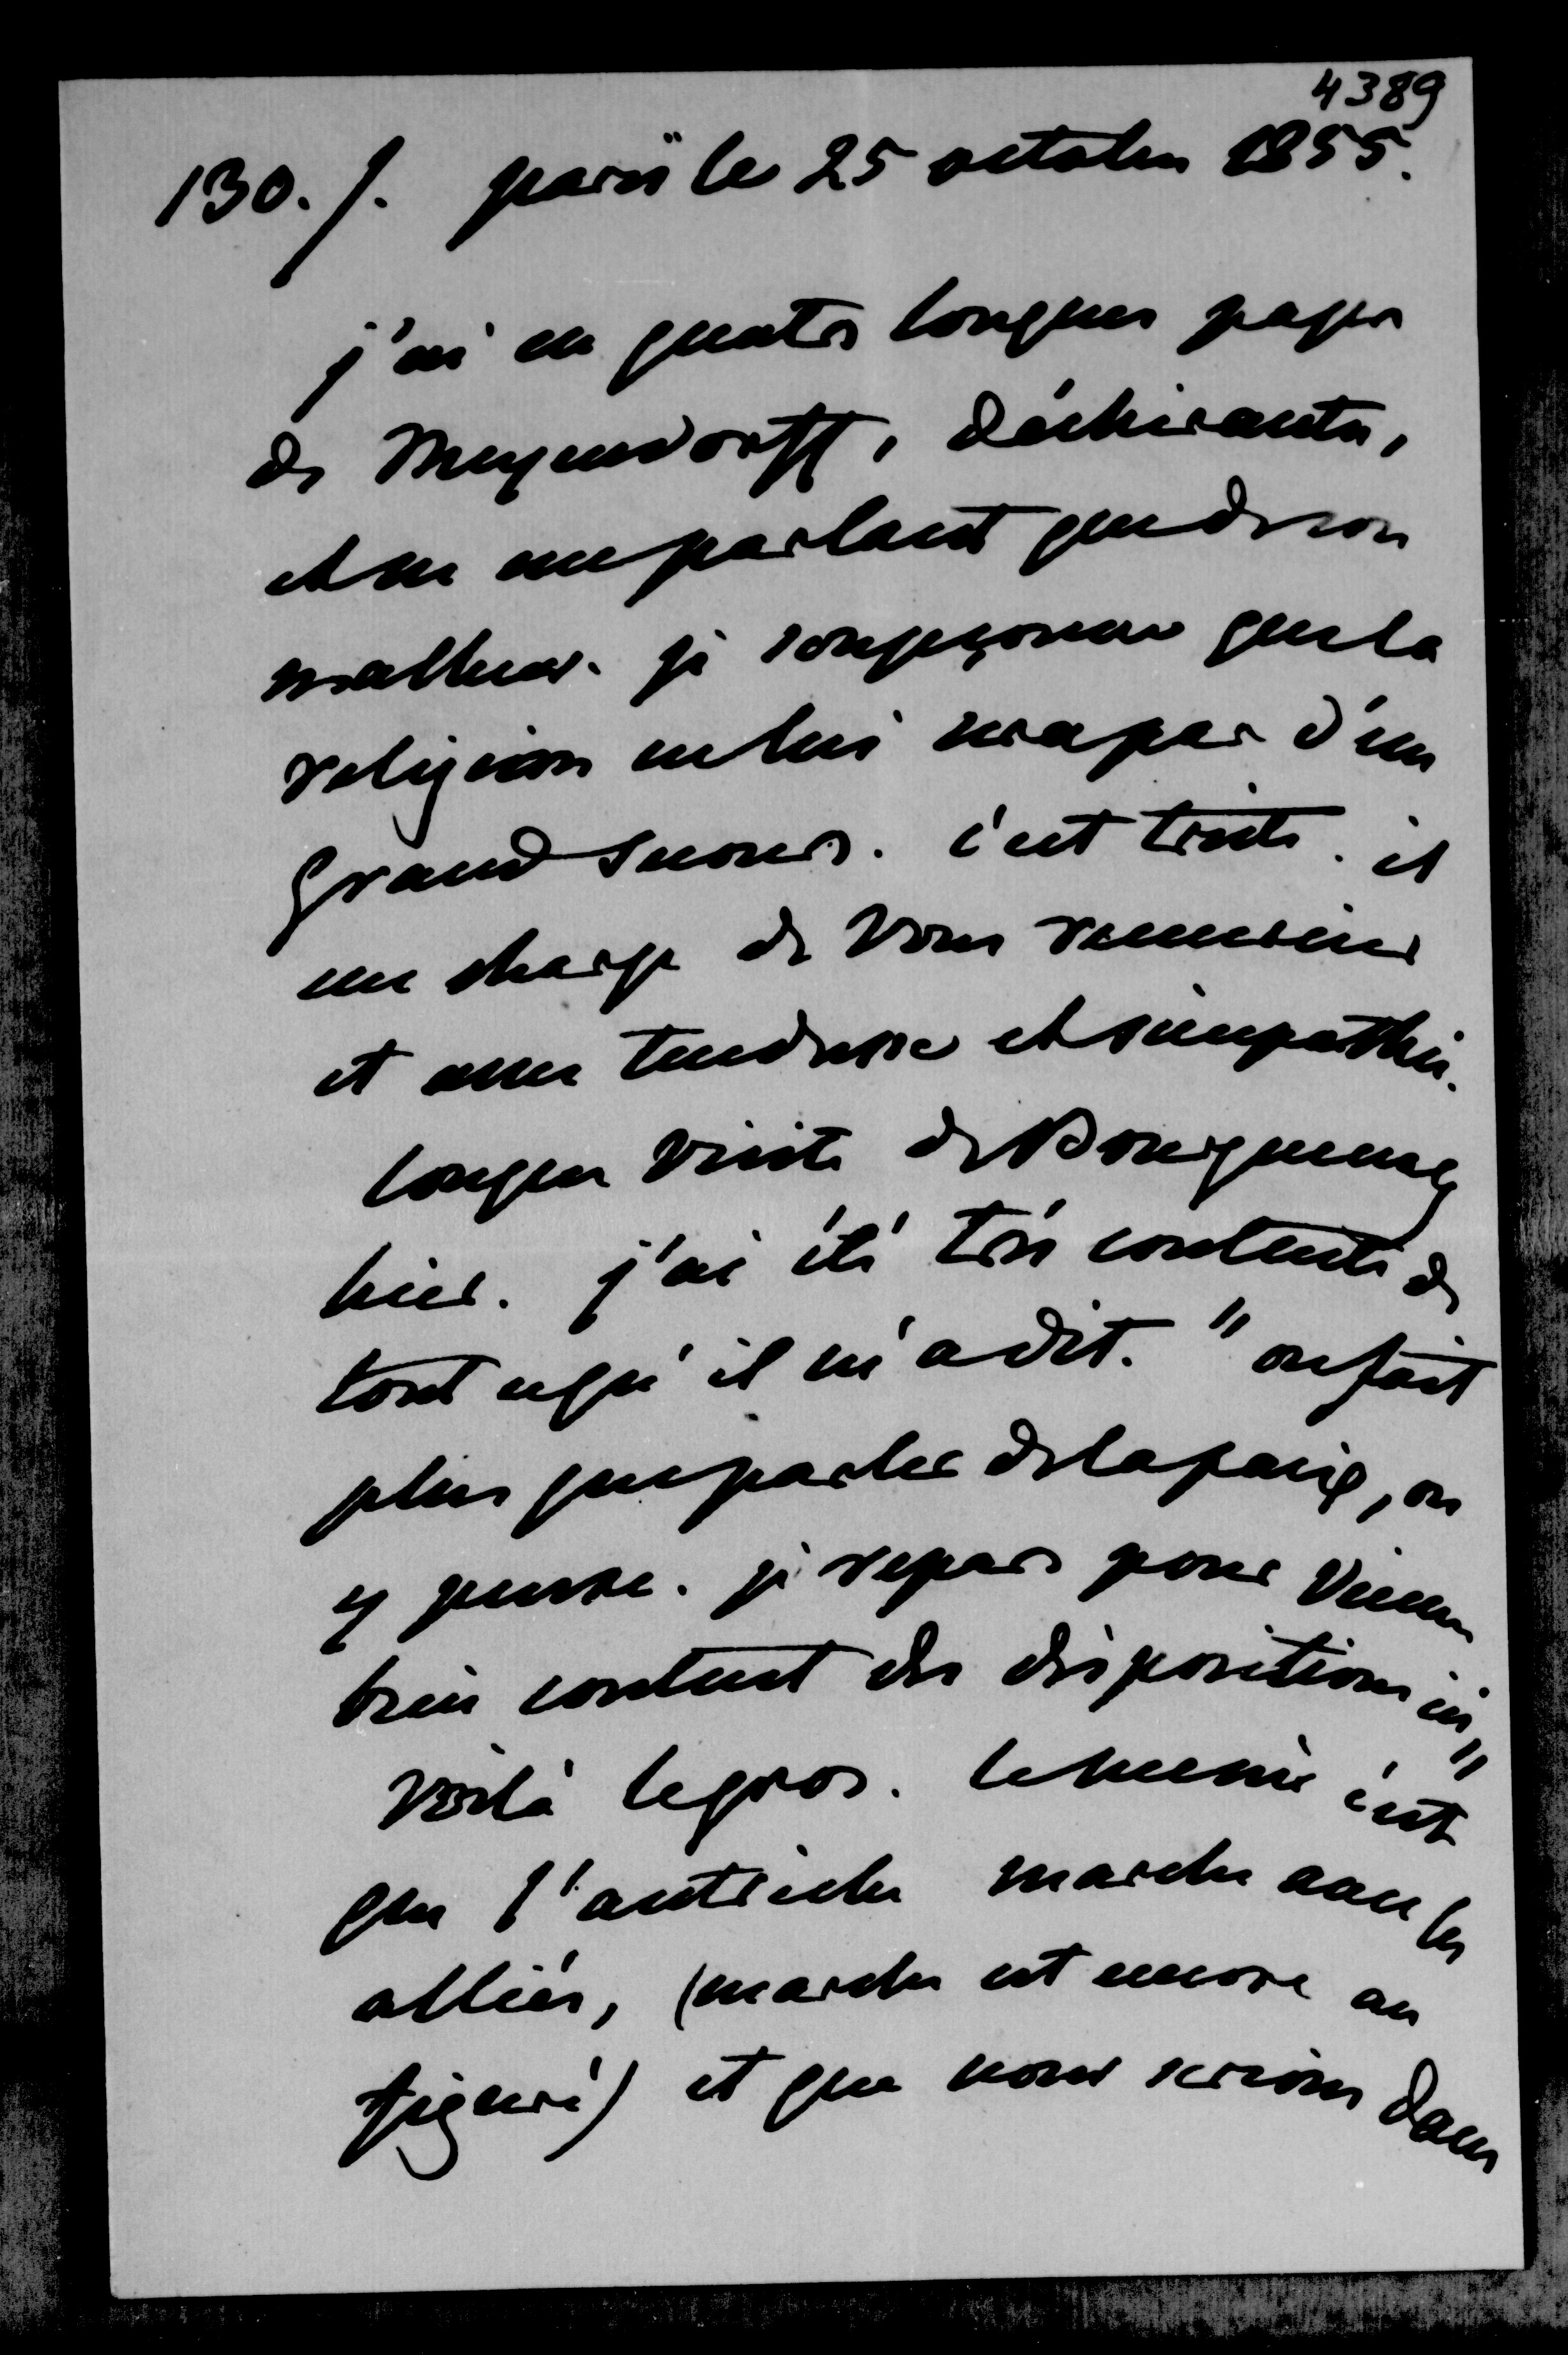 4389
130. /. paris le 25 octobre 1855.
j'ai eu quatre longues pages
de Meyendorff, déchirantes,
et ne me parlant que de son
malheur. je soupçonne que la
religion ne lui sera pas d'un
grand secours. c'est triste. il
me charge de vous remercier
et avec tendresse et simpathie.
longue visite de Bourqueney
hier. j'ai été très contente de
tout ce qu'il m'a dit. "on fait
plus que parler de la paix, on
y pense. je repars pour Vienne
bien content des dispositions ici"
voilà le gros. le menu c'est
que l'autriche marche avec les
alliés, (marche est encore au
figuré) et que nous serions dans